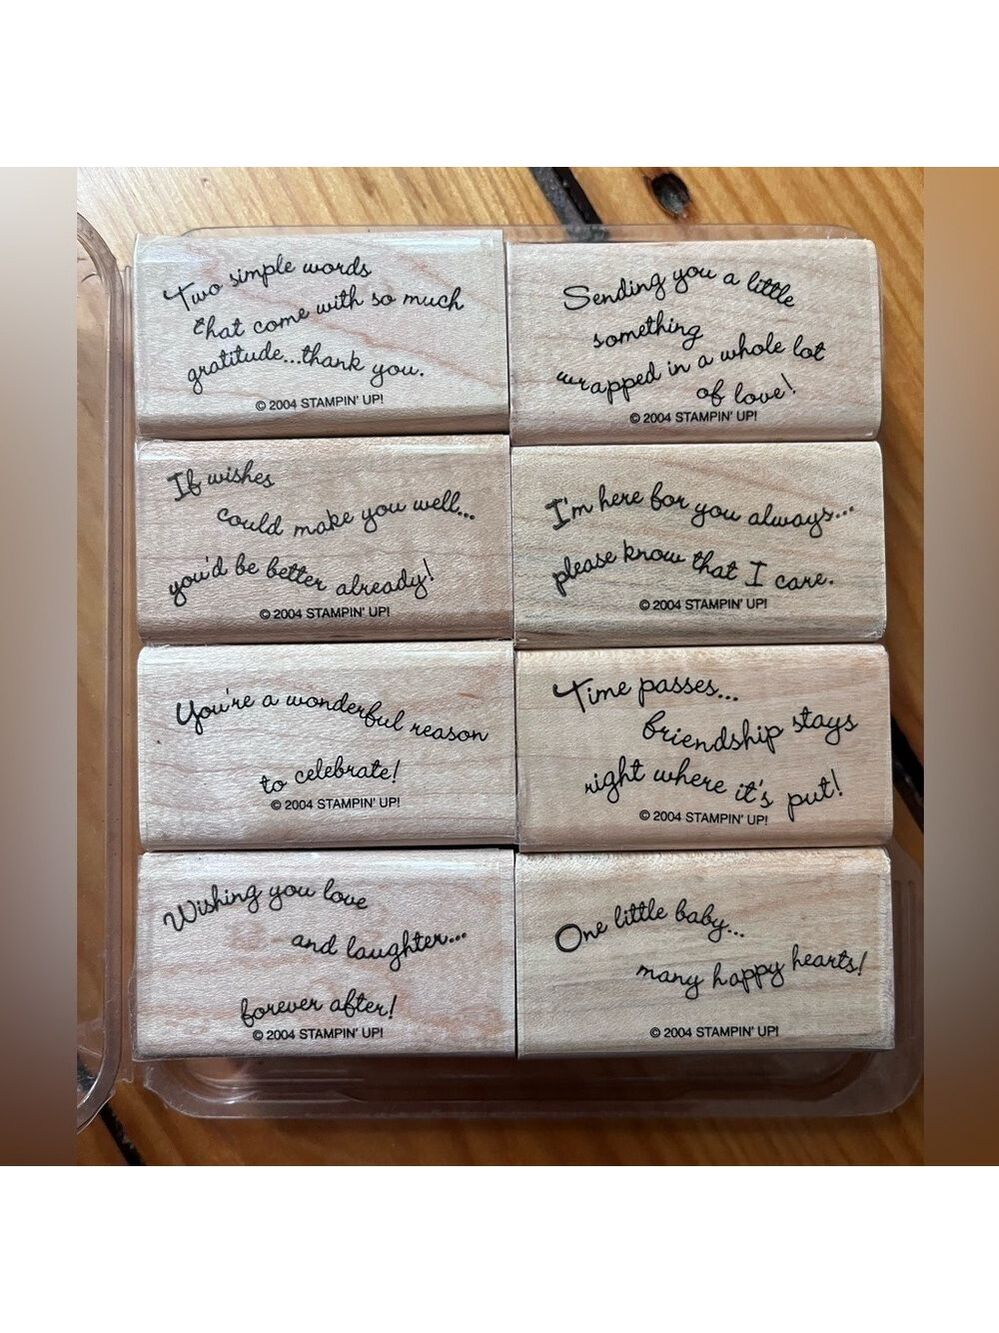 Two simple words
that come with so much
gratitude...thank you.
© 2004 STAMPIN' UP!
Sending you a little
something
wrapped in a whole lot
of love!
© 2004 STAMPIN' UP!
If wishes
could make you well...
you'd be better already!
© 2004 STAMPIN' UP!
I'm here for you always...
please know that I care.
© 2004 STAMPIN' UP!
You're a wonderful reason
to celebrate!
© 2004 STAMPIN' UP!
Time passes...
friendship stays
right where it's put!
© 2004 STAMPIN' UP!
Wishing you love
and laughter...
forever after!
© 2004 STAMPIN' UP!
One little baby...
many happy hearts!
© 2004 STAMPIN' UP!